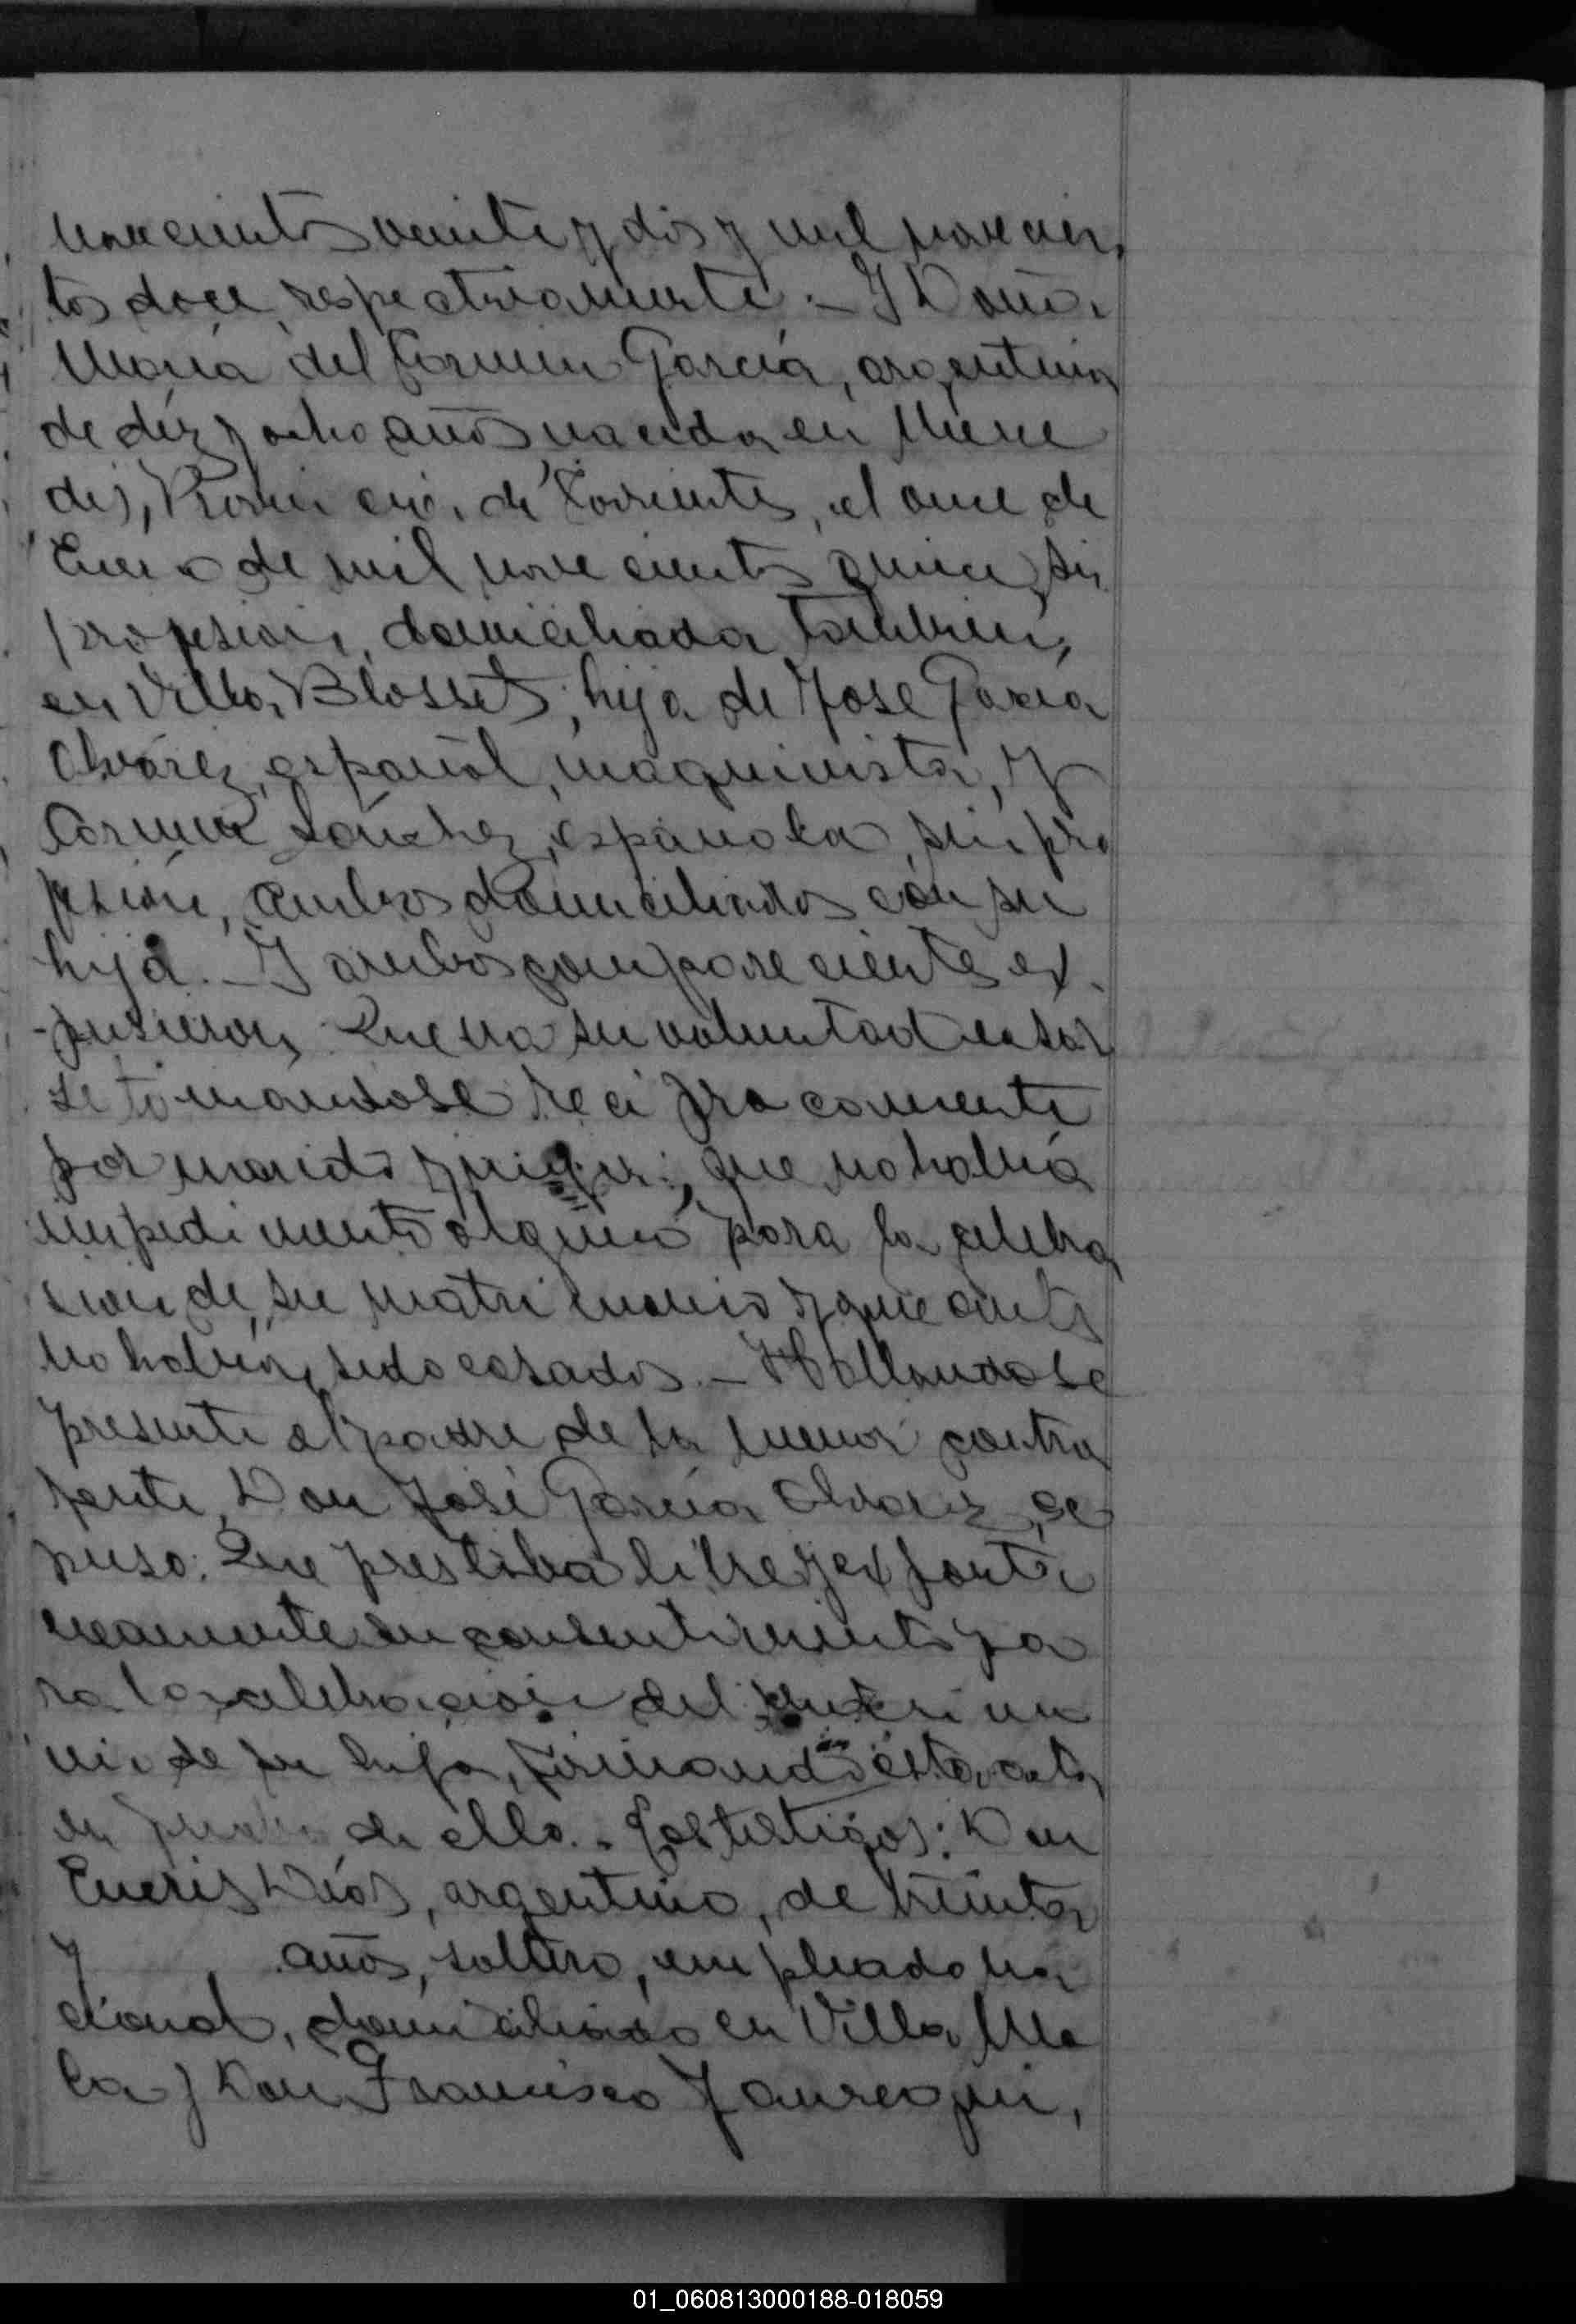 novecientos veinte y dos y mil novecien
tos doce respectivamente. - Y Doña
María del Carmen García, argentina
de diéz y ocho años nacida en Merce
des, Provincia de Corrientes, el once de
Enero de mil novecientos quince, sin
profesión, domiciliada también,
en Villa Blosset; hija de José García
Alvárez, español, maquinista, y
Carmen Sánchez, española, sin pro
fesión, ambos domiciliados con su
hija. - Y ambos comparecientes ex-
-pusieron, Que era su voluntad casar
se tomandose reciprocamente
por marido y mujer; que no había
impedimento alguno para la celebra
sion de su matrimonio y que antes
no habían sido casados. - Hallandose
presente el padre de la menor contra
yente, Don José García Alvarez, ex
puso: Que prestaba libre y exponta
neamente su consentimiento pa
ra la celebracion del matrimo
nio de su hija, firmando ésta acta
en prueba de ello. - Los testigos: Don
Eneris Diós, argentino, de treinta
y años, soltero, empleado na
cional, domiciliado en Villa Me
la y Don Francisco Jauregui,
01_060813000188-018059